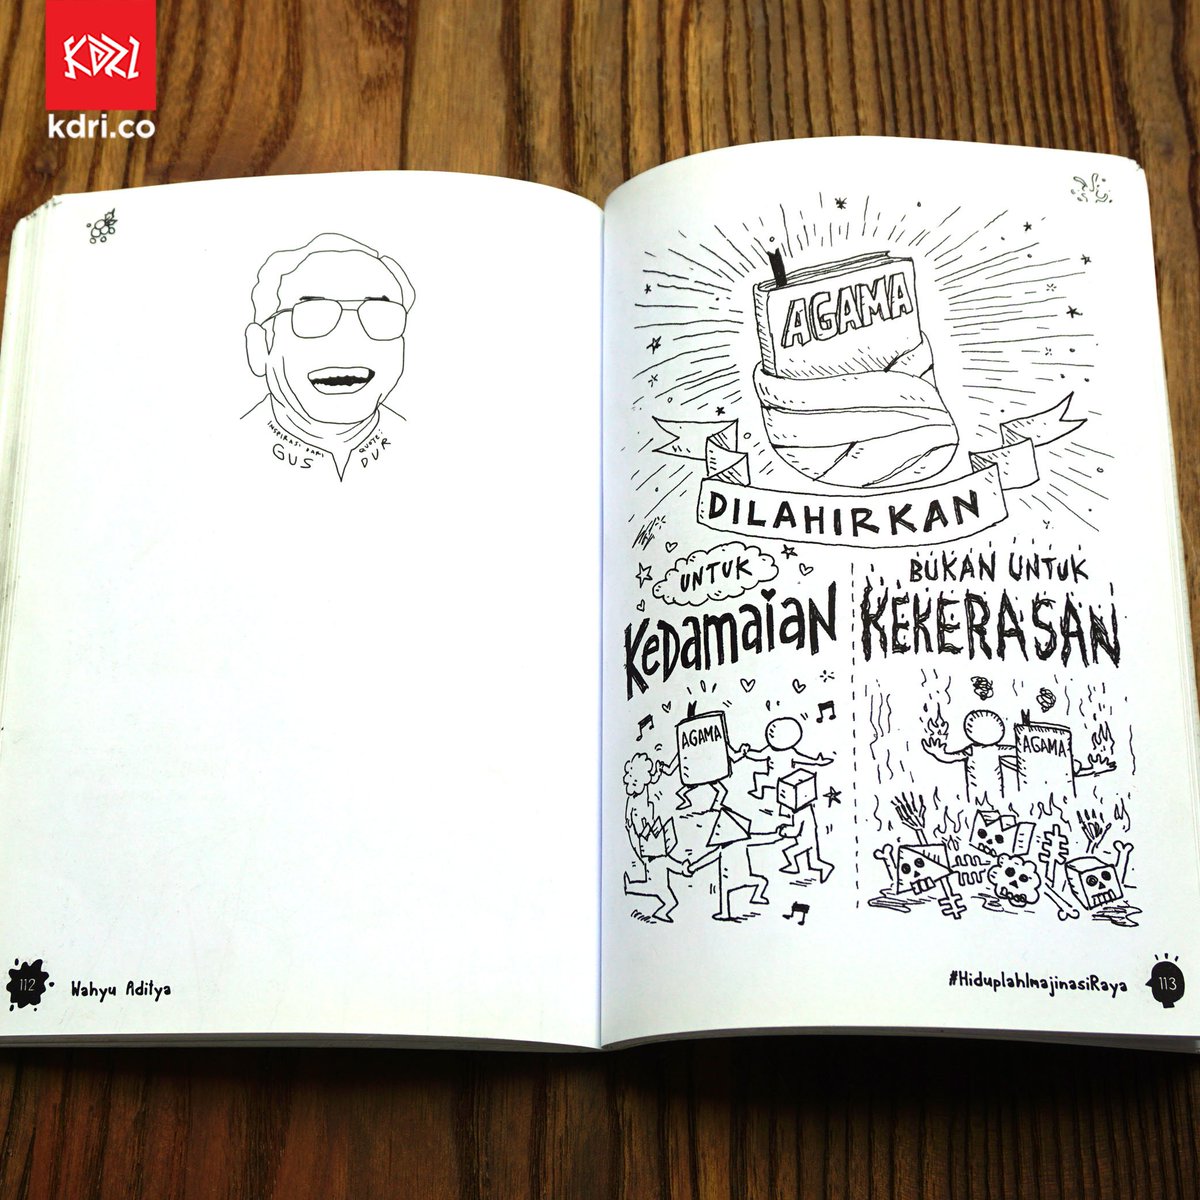 KDRI
kdri.co
INSPIRASI DARI QUOTE:
GUS DUR
112
Wahyu Aditya
AGAMA
DILAHIRKAN
UNTUK
KeDamaian
BUKAN UNTUK
KEKERASAN
AGAMA
AGAMA
#HiduplahImajinasiRaya
113